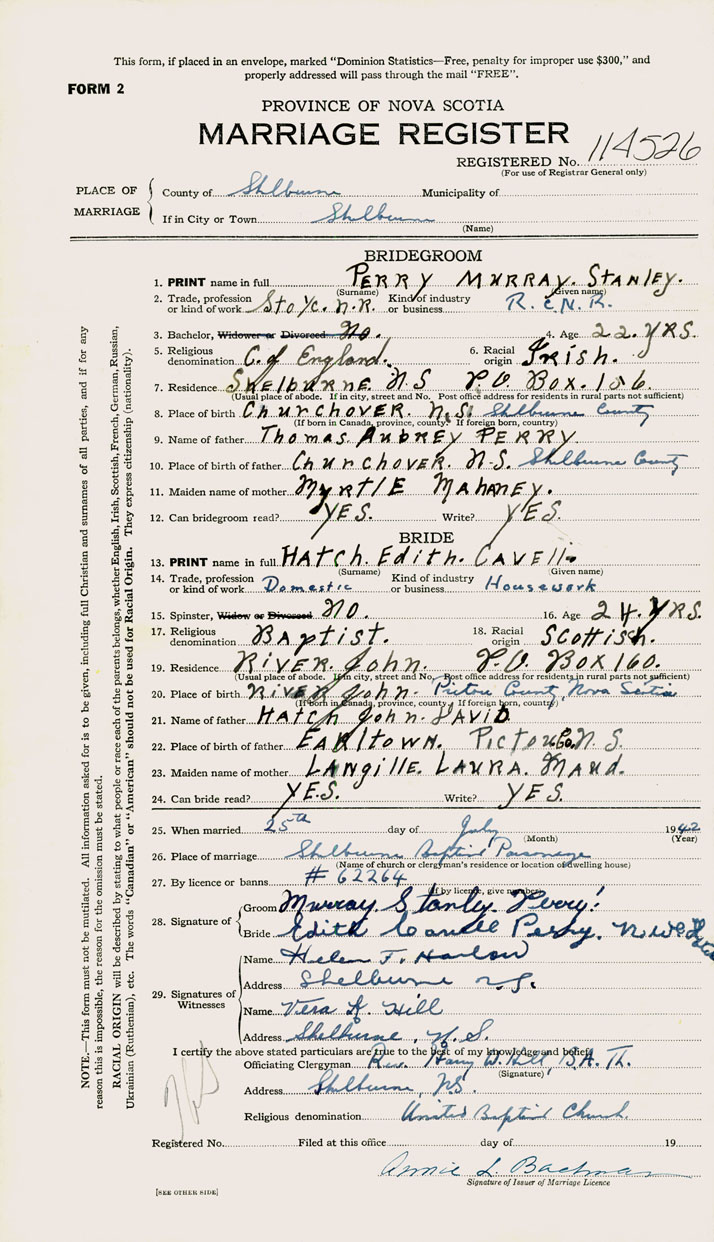 This form, if placed in an envelope, marked "Dominion Statistics—Free, penalty for improper use $300," and
properly addressed will pass through the mail "FREE".
FORM 2
PROVINCE OF NOVA SCOTIA
MARRIAGE REGISTER
REGISTERED No. 114526
(For use of Registrar General only)
PLACE OF MARRIAGE
County of Shelburne Municipality of
If in City or Town Shelburne
(Name)
BRIDEGROOM
1. PRINT name in full PERRY MURRAY. STANLEY.
(Surname) (Given name)
2. Trade, profession or kind of work Sto/c. N.R. Kind of industry or business R.C.N.R.
3. Bachelor, Widower or Divorced No. 4. Age 22. YRS.
5. Religious denomination C. of England. 6. Racial origin Irish.
7. Residence SHELBURNE N.S P.O. Box. 156.
(Usual place of abode. If in city, street and No. Post office address for residents in rural parts not sufficient)
8. Place of birth Churchover. N.S. Shelburne County
(If born in Canada, province, county. If foreign born, country)
9. Name of father Thomas Aubrey PERRY
10. Place of birth of father Churchover. N.S. Shelburne County
11. Maiden name of mother Myrtle Mahaney.
12. Can bridegroom read? YES. Write? YES.
BRIDE
13. PRINT name in full HATCH. Edith. CAVELL.
(Surname) (Given name)
14. Trade, profession or kind of work Domestic Kind of industry or business Housework
15. Spinster, Widow or Divorced No. 16. Age 24. YRS.
17. Religious denomination Baptist. 18. Racial origin Scottish.
19. Residence RIVER. John. P.O. Box 160.
(Usual place of abode. If in city, street and No. Post office address for residents in rural parts not sufficient)
20. Place of birth RIVER John. Pictou County, Nova Scotia
(If born in Canada, province, county. If foreign born, country)
21. Name of father Hatch John. DAVID
22. Place of birth of father Earltown. Pictou Co. N.S.
23. Maiden name of mother LANGILLE. LAURA. Maud.
24. Can bride read? YES. Write? YES.
25. When married 25th day of July 1942
(Month) (Year)
26. Place of marriage Shelburne Baptist Parsonage
(Name of church or clergyman's residence or location of dwelling house)
27. By licence or banns # 62264
(If by licence, give number)
28. Signature of
Groom Murray Stanley. Perry!
Bride Edith Cavell Perry.
29. Signatures of Witnesses
Name Helen F. Harlow
Address Shelburne N.S.
Name Vera K. Hill
Address Shelburne, N.S.
I certify the above stated particulars are true to the best of my knowledge and belief.
Officiating Clergyman Rev. Harry W. Hill, B.A. Th.
(Signature)
Address Shelburne, N.S.
Religious denomination United Baptist Church.
Registered No. Filed at this office day of 19
Annie L. Bachman
Signature of Issuer of Marriage Licence
[SEE OTHER SIDE]
NOTE.—This form must not be mutilated. All information asked for is to be given, including full Christian and surnames of all parties, and if for any
reason this is impossible, the reason for the omission must be stated.
RACIAL ORIGIN will be described by stating to what people or race each of the parents belongs, whether English, Irish, Scottish, French, German, Russian,
Ukrainian (Ruthenian), etc. The words "Canadian" or "American" should not be used for Racial Origin. They express citizenship (nationality).